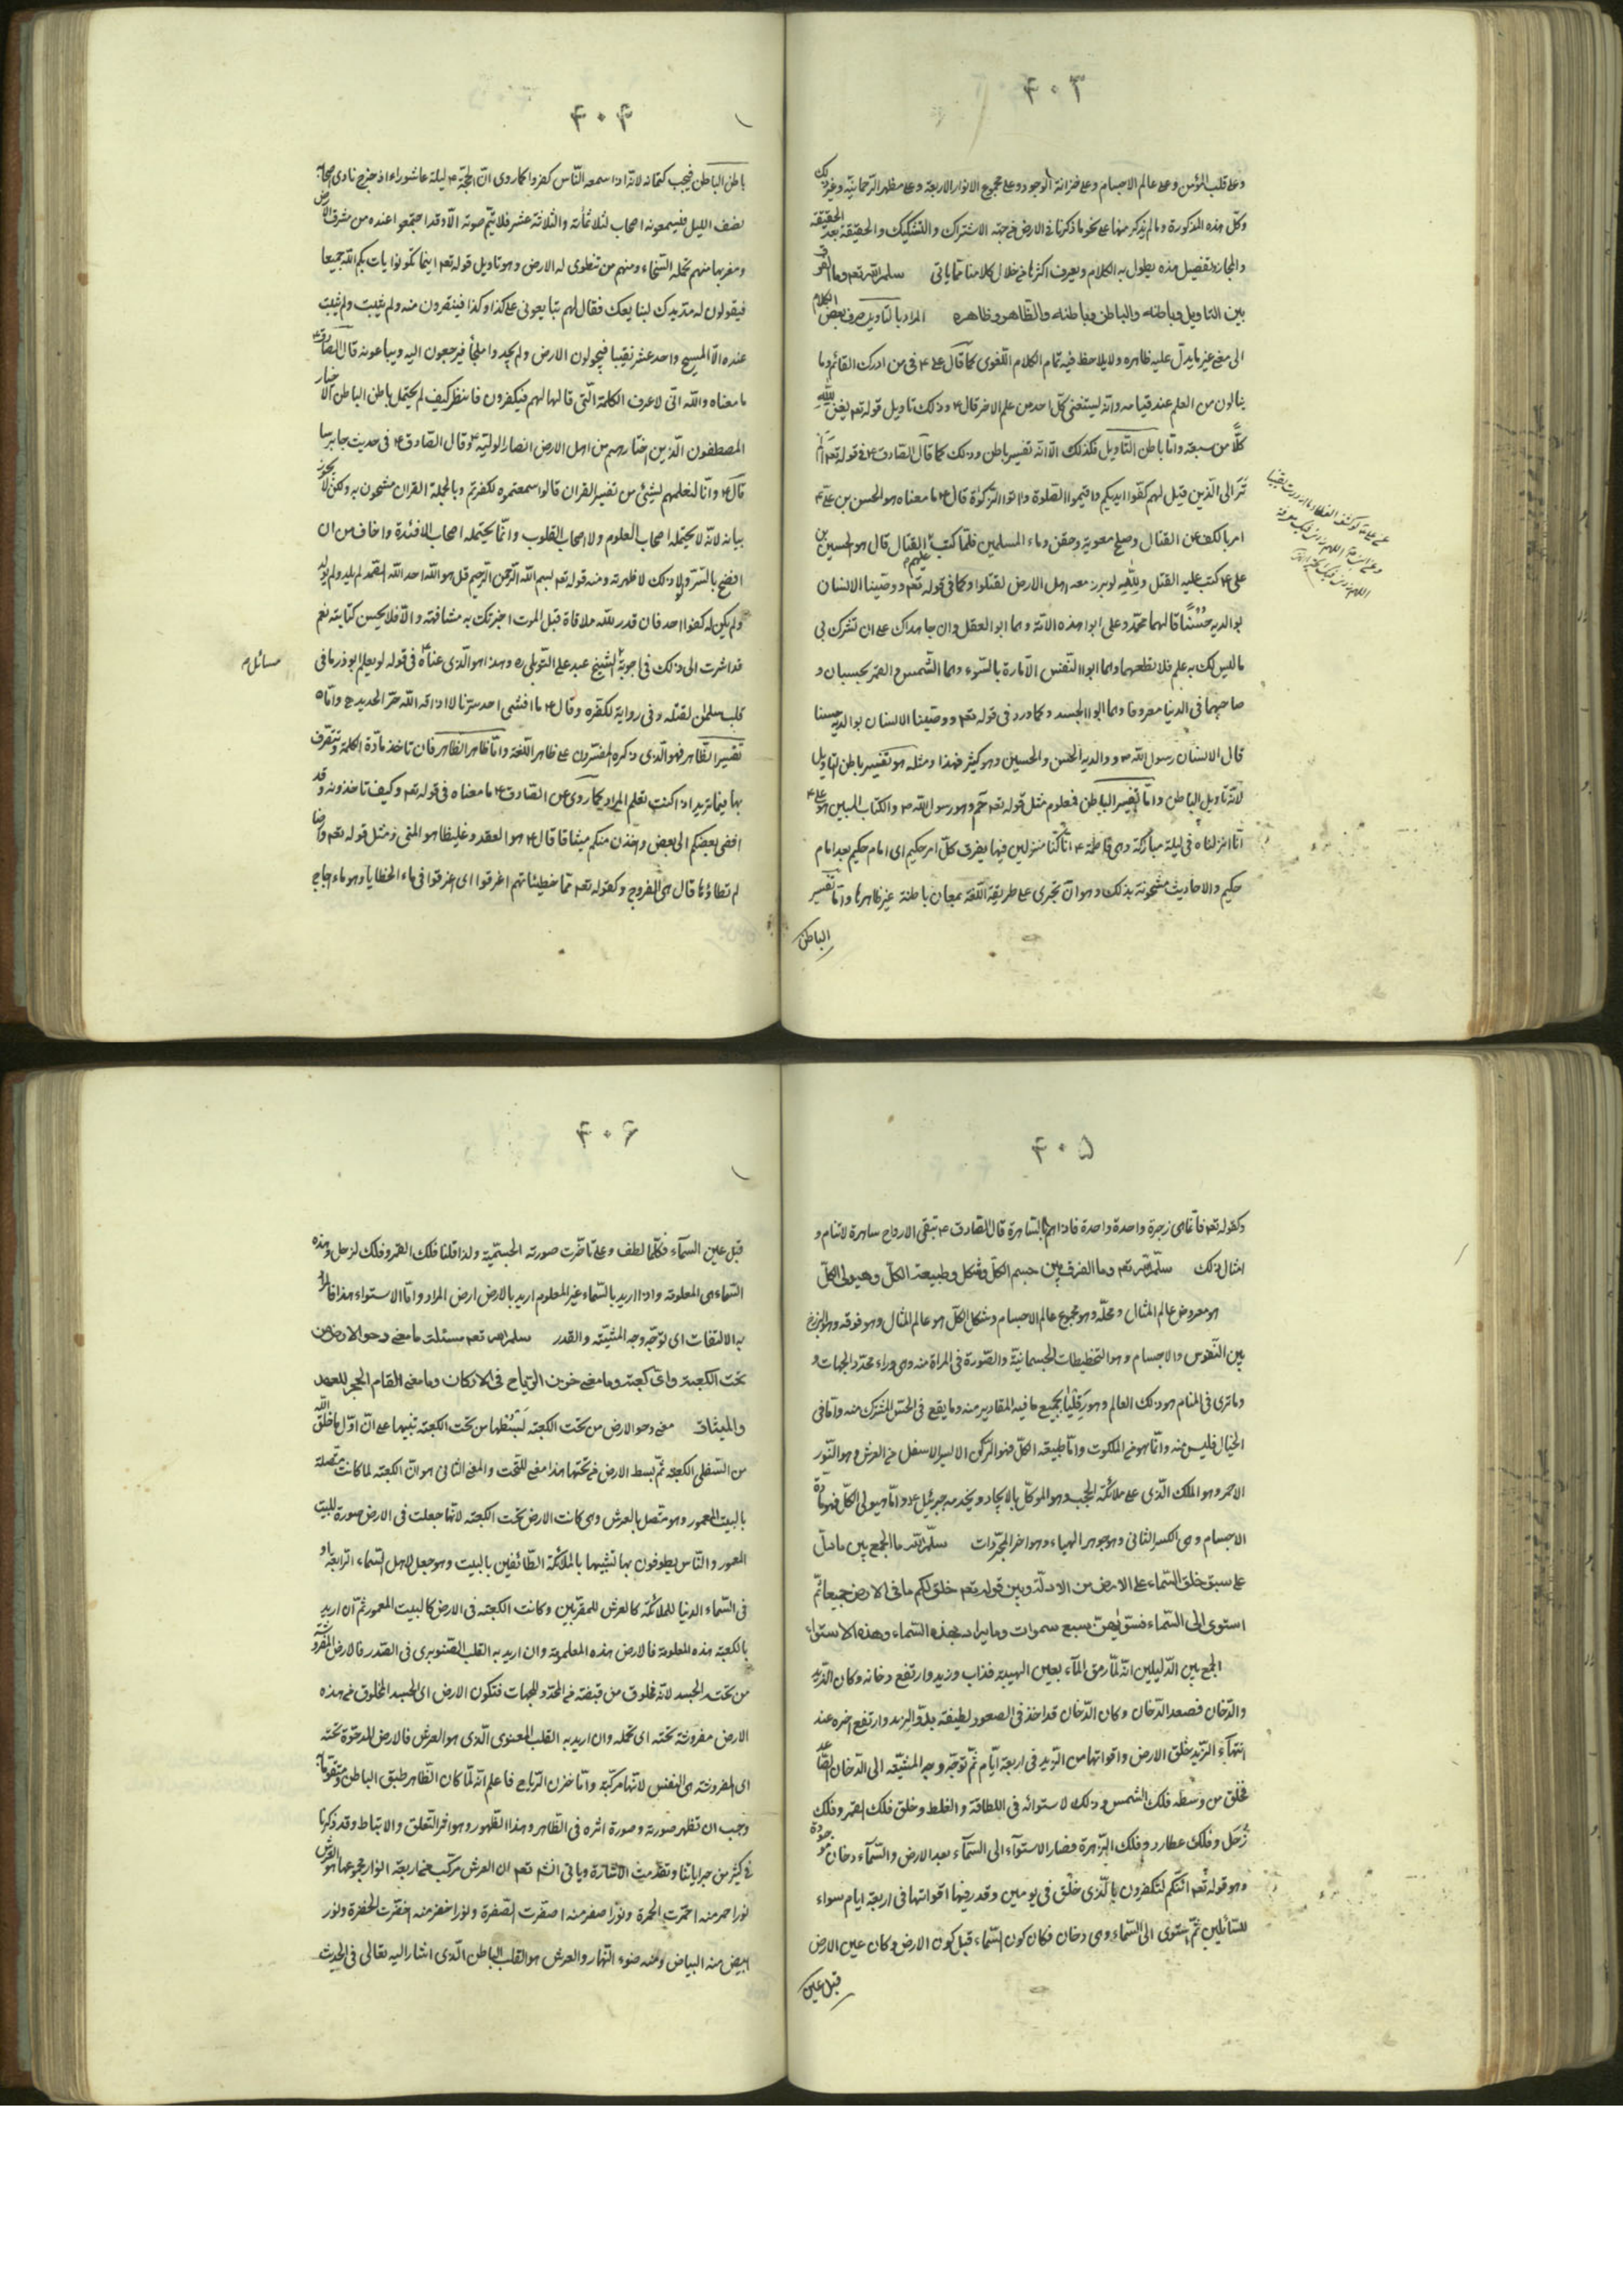 ۴۰۳
وعلى قلب المؤمن وعلى عالم الاجسام وعلى خزانة الوجود وعلى مجموع الانوار الاربعة وعلى مظهر الرحمانية وغير ذلك
وكل هذه المذكورة وما لم يذكر منها على نحو ما ذكرنا فى الارض من جهة الاشتراك والتشكيك والحقيقة بعد الحقيقة
والمجاز وتفصيل هذه يطول به الكلام ويعرف اكثرها من خلال كلامنا مما ياتى سلمه الله تعم وما الفرق
بين التاويل وباطنه والباطن وباطنه والظاهر وظاهره المراد بالتاويل صرف بعض الكلام
الى معنى غير ما يدل عليه ظاهره ولا يلاحظ فيه تمام الكلام اللغوى كما قال على ۴ فى من ادرك القائم وما
ينالون من العلم عند قيامه وانه ليستغنى كل احد من علم الاخر قال ۴ وذلك تاويل قوله تعم يغن الله
كلًّا من سعته واما باطن التاويل فكذلك الا انه تفسير باطن وذلك كما قال الصادق ۴ فى قوله تعم الم
تر الى الذين قيل لهم كفوا ايديكم واقيموا الصلوة واتوا الزكوة قال ۴ ما معناه هو الحسن بن على ۴
امر بالكف عن القتال وصلح معوية وحقن دماء المسلمين فلما كتب عليهم القتال قال هو الحسين بن
على ۴ كتب عليه القتل والله لو برز معه اهل الارض لقتلوا وكما فى قوله تعم ووصينا الانسان
بوالديه حُسْنًا قال هما محمد وعلى ابوا هذه الامة وهما ابو العقل وان جاهداك على ان تشرك بى
ما ليس لك به علم فلا تطعهما وهما ابوا النفس الامارة بالسوء وهما الشمس والقمر بحسبان و
صاحبهما فى الدنيا معروفا وهما ابوا الجسد وكما ورد فى قوله تعم ووصينا الانسان بوالديه حسنا
قال الانسان رسول الله ص والديه الحسن والحسين وهو كثير فهذا ومثله هو تفسير باطن التاويل
لانه تاويل الباطن واما تفسير الباطن فمعلوم مثل قوله تعم حم وهو رسول الله ص والكتاب المبين هو على ۴
انا انزلناه فى ليلة مباركة وهى فاطمة ۴ انا كنا منزلين فيها يفرق كل امر حكيم اى امام حكيم بعد امام
حكيم والاحاديث مشحونة بذلك وهو ان تجرى على طريقة اللغة بمعان باطنة غير ظاهرها واما تفسير
الباطن
۴۰۴
باطن الباطن فيجب كتمانه لانه اذا سمعه الناس كفروا كما روى ان الحجة ۴ ليلة عاشوراء اذ خرج نادى اصحابه
نصف الليل فيسمعونه اصحاب الثلاثمائة والثلاثة عشر فلا يتم صوته الا وقد اجتمعوا عنده من مشرق الارض
ومغربها منهم تحمله السحاب ومنهم من تنطوى له الارض وهو تاويل قوله تعم اينما تكونوا يات بكم الله جميعا
فيقولون له مد يدك لنبايعك فقال لهم تبايعونى على كذا وكذا فينفرون منه ولم يثبت
عنده الا المسيح واحد عشر نقيبا فيجولون الارض ولم يجدوا ملجأ فيرجعون اليه ويبايعونه قال الصادق ۴
ما معناه والله انى لاعرف الكلمة التى قالها لهم فيكفرون فانظر كيف لم يحتمل باطن الباطن الاخيار
المصطفون الذين اختارهم من اهل الارض انصارا لوليه ۴ وقال الصادق ۴ فى حديث جابرسا
قال ۴ وانا لنعلمهم لشئ من تفسير القران قالوا سمعتموه لكفرتم وبالجملة القران مشحون به ولكن لا يجوز
بيانه لانه لا يحتمله اصحاب العلوم ولا اصحاب القلوب وانما يحتمله اصحاب الافئدة واخاف من ان
افضح بالسر ولا ذلك لاظهرته ومنه قوله تعم بسم الله الرحمن الرحيم قل هو الله احد الله الصمد لم يلد ولم يولد
ولم يكن له كفوا احد فان قدر الله ملاقاة قبل الموت اخبرتك به مشافهة والا فلا يحسن كتابته نعم
قد اشرت الى ذلك فى اجوبة الشيخ عبد على التوبلى ره وهذا هو الذى عناه فى قوله لو يعلم ابوذر ما فى
مسائل م
قلب سلمان لقتله وفى رواية لكفره وقال ۴ ما افشى احد سرنا الا اذاقه الله حر الحديد واما
تفسير الظاهر فهو الذى ذكره المفسرون على ظاهر اللغة واما ظاهر الظاهر فان تاخذ مادة الكلمة وتتصرف
بها فيما تريد اذا كنت تعلم المراد كما روى عن الصادق ۴ ما معناه فى قوله تعم وكيف تاخذونه وقد
افضى بعضكم الى بعض واخذن منكم ميثاقا قال ۴ هو العقد وغليظا هو المنى ومثل قوله تعم وارضا
لم تطاؤها قال هى الفروج وكقوله تعم مما خطيئاتهم اغرقوا اى اغرقوا فى ماء الخطايا وهو ماء اجاج
۴۰۵
وكقوله تعم فانما هى زجرة واحدة واحدة فاذا هم بالساهرة قال الصادق ۴ تبقى الارواح ساهرة لا تنام و
امثال ذلك سلمه الله تعم وما الفرق بين جسم الكل وشكل وطبيعة الكل وهيولى الكل
هو معروض عالم المثال ومحله وهو مجموع عالم الاجسام وشكل الكل هو عالم المثال وهو فوقه وهو البرزخ
بين النفوس والاجسام وهو التخطيطات الجسمانية والصورة فى المراة منه وهى وراء محدد الجهات و
وما ترى فى المنام هو ذلك العالم وهو بجميع ما فيه المقادير منه وما يقع فى الحس المشترك منه واما فى
الخيال فليس منه وانما هو من الملكوت واما طبيعة الكل فهو الركن الايسر الاسفل من العرش وهو النور
الاحمر وهو الملك الذى على ملائكة الحجب وهو الموكل بالايجاد ويخدمه جبرئيل ۴ واما هيولى الكل فهو مادة
الاجسام وهى الكسر الثانى وهو جوهر الهباء وهو اخر المجردات سلمه الله ما الجمع بين ما دل
على سبق خلق السماء على الارض من الادلة وبين قوله تعم خلق لكم ما فى الارض جميعا ثم
استوى الى السماء فسويهن سبع سموات وما يراد بهذه السماء وهذه الاستواء
الجمع بين الدليلين انه لما رمق الماء بعين الهيبة فذاب وزبد وارتفع دخانه وكان الزبد
والدخان فصعد الدخان وكان الدخان قد اخذ فى الصعود لطيفته بدو الزبد وارتفع اخره عند
انتهاء الزبد خلق الارض واقواتها من الزبد فى اربعة ايام ثم توجه وجه المشية الى الدخان الصاعد
فخلق من وسطه فلك الشمس وذلك لاستوائه فى اللطافة والغلظ وخلق فلك القمر وفلك
زحل وفلك عطارد وفلك الزهرة فصار الاستواء الى السماء بعد الارض والسماء دخان موجودة
وهو قوله تعم ائنكم لتكفرون بالذى خلق فى يومين وقدر فيها اقواتها فى اربعة ايام سواء
للسائلين ثم استوى الى السماء وهى دخان فكان كون السماء قبل كون الارض وكان عين الارض
قبل عين
۴۰۶
قبل عين السماء فكلما لطف وعلى تاخرت صورته الجسمية ولذا قلنا فلك القمر وفلك لزحل وهذه
السماء هى المعلومة واذا اريد بالسماء غير المعلوم اريد بالارض ارض المراد واما الاستواء هذا فالمراد
به الالتفات اى توجه وجه المشية والقدر سلمه الله تعم مسئلة ما معنى دحو الارض من
تحت الكعبة واى كعبة وما معنى خزن الرياح فى الاركان وما معنى القام الحجر للعهد
والميثاق معنى دحو الارض من تحت الكعبة بَسْطُها من تحت الكعبة تنبيها على ان اول ما خلق الله
من السفلى الكعبة ثم بسط الارض من تحتها هذا معنى للتحت والمعنى الثانى هو ان الكعبة لما كانت متصلة
بالبيت المعمور وهو متصل بالعرش وهى كانت الارض تحت الكعبة لانها جعلت فى الارض صورة البيت
المعمور والناس يطوفون بها تشبيها بالملائكة الطائفين بالبيت وهو جعل لاهل السماء الرابعة او
فى السماء الدنيا للملائكة كالعرش للمقربين وكانت الكعبة فى الارض كالبيت المعمور ثم ان اريد
بالكعبة هذه المعلومة فالارض هذه المعلومة وان اريد به القلب الصنوبرى فى الصدر فالارض المفروشة
من تحته الجسد لانه مخلوق من قبضة من المحدد للجهات فتكون الارض اى الجسد المخلوق من هذه
الارض مفروشة تحته اى تحمله وان اريد به القلب المعنوى الذى هو العرش فالارض المدحوة تحته
اى المفروشة هى النفس لانها مركبه واما خزن الرياح فاعلم انه لما كان الظاهر طبق الباطن ومتقوما به
وجب ان تظهر صورته وصورة اثره فى الظاهر وهذا الظهور وهو اثر التعلق والارتباط وقد ذكرنا
فى كثير من جواباتنا وتقدمت الاشارة وياتى انشاء تعم ان العرش مركب من اربعة انوار مجموعها هو العرش
نور احمر منه احمرت الحمرة ونور اصفر منه اصفرت الصفرة ونور اخضر منه اخضرت الخضرة ونور
ابيض منه البياض ومنه ضوء النهار والعرش هو القلب الباطن الذى اشار اليه تعالى فى الحديث